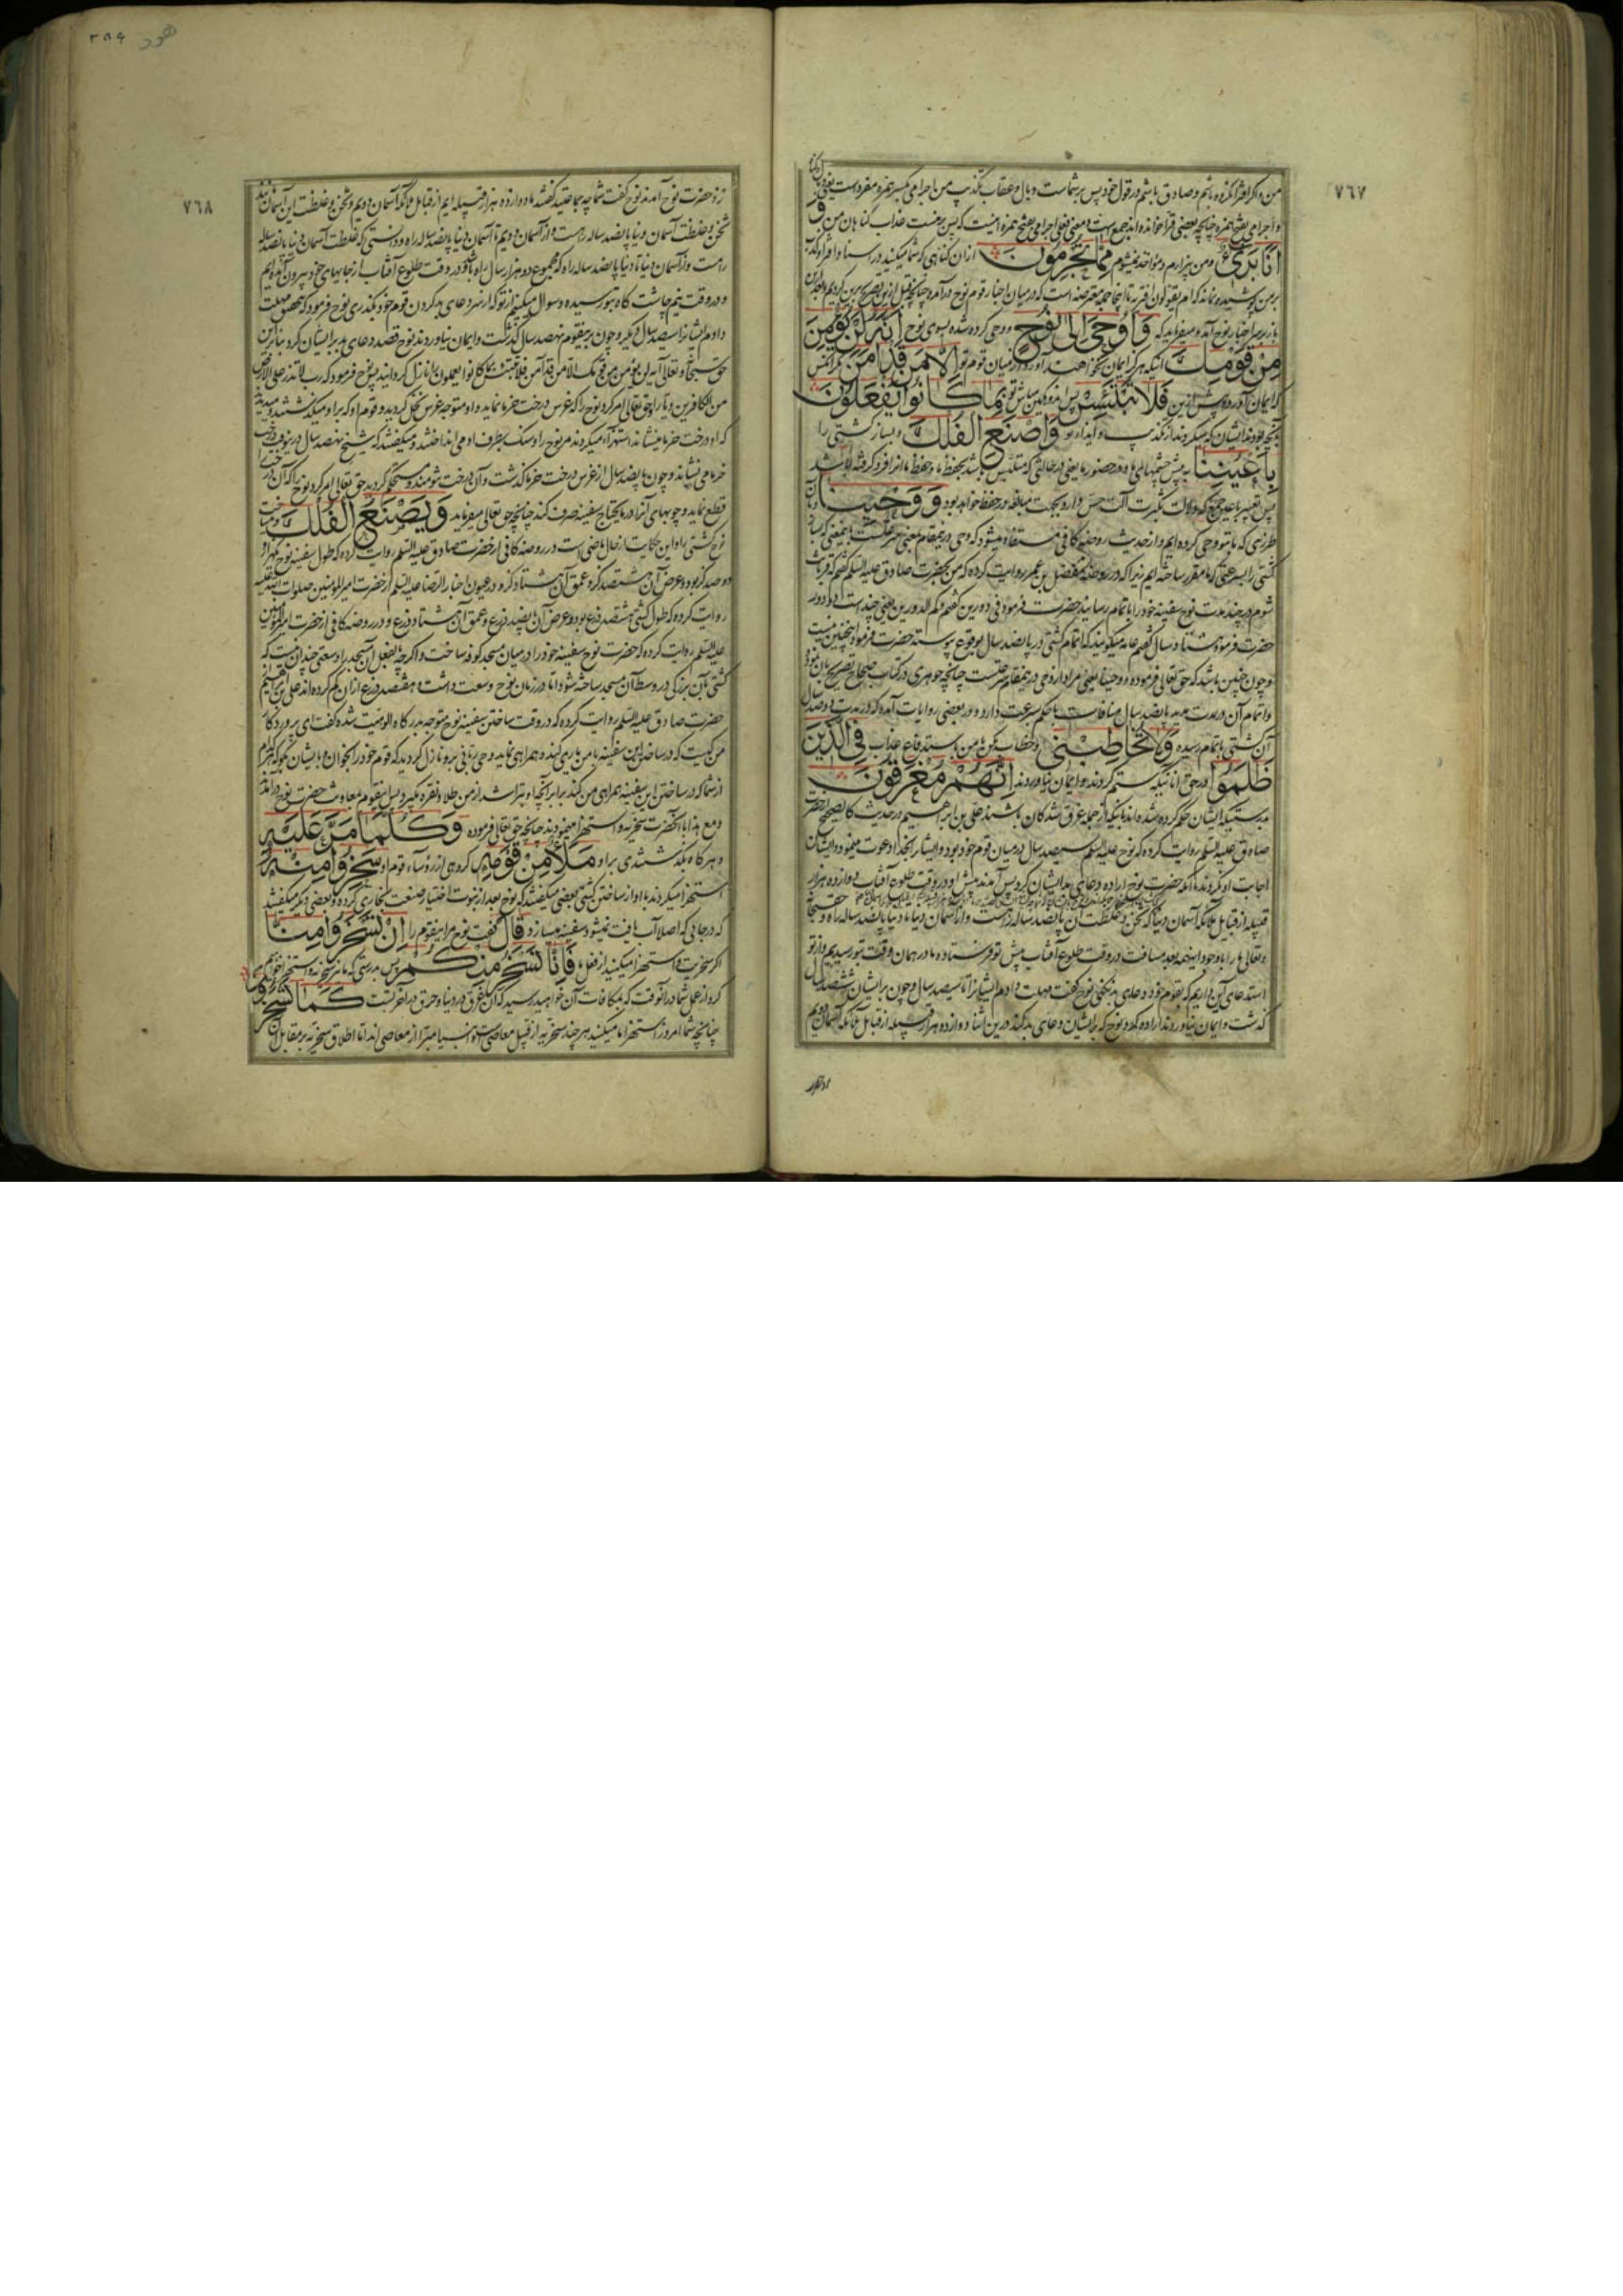 ٧٦٧
من و اگر افترا نکرده باشم و صادق باشم در قول خود پس بر شماست وبال و عقاب تکذیب من اجرامی بکسر همزه مفرد است یعنی
و اجرامی بفتح همزه چنانچه بعضی قرا خوانده‌اند جمع است و معنی
انا بریء و من بیزارم و مؤاخذ نمیشوم مما تجرمون از ان گناهی که شما میکنید در اسناد افترا
بر من پوشیده نماند که ام یقولون افتریه تا اینجا جمله معترضه است که در میان اخبار قوم نوح درآمده چنانچه قبل ازین تصریح برین کردیم
باز بر سر اخبار نوح آمده میفرماید که و اوحی الی نوح و وحی کرده شده بسوی نوح انه لن یؤمن
من قومک آنکه هرگز ایمان نخواهند آورد از میان قوم تو الا من قد امن مگر آنکس
که ایمان آورده پیش ازین فلا تبتئس پس اندوهگین مباش تو بما کانوا یفعلون
بآنچه بودند ایشان که میکردند از تکذیب و ایذاء تو واصنع الفلک و بساز کشتی را
باعیننا به پیش چشمهای ما و در حضور ما یعنی در حالتی که متلبس باشد بحفظ ما
پس تعبیر باعین جمع که دلالت بکثرت آلت حس دارد بجهت مبالغه در حفظ خواهد بود و وحینا
طرزی که ما بتو وحی کرده‌ایم و از حدیث روضه کافی مستفاد میشود که وحی در ینمقام بمعنی سرعتست
کشتی را بسرعتی که ما مقرر ساخته‌ایم زیرا که در روضه مفضل بن عمر روایت کرده که من بحضرت صادق علیه السلم گفتم که قربانت
شوم در چند مدت نوح سفینه خود را باتمام رسانید حضرت فرمود فی دورین گفتم و کم الدورین یعنی چند است دو دور
حضرت فرمود هشتاد سال گفتم عامه میگویند که اتمام کشتی در پانصد سال بوقوع پیوسته حضرت فرمود اینچنین نیست
و چون چنین باشد که حق تعالی فرموده و وحینا یعنی مراد از وحی در ینمقام سرعتست چنانچه جوهری در کتاب صحاح تصریح بآن نموده
و اتمام آن در مدت مدید پانصد سال منافات با حکم سرعت دارد و در بعضی روایات آمده که در مدت دو صد سال
آن کشتی باتمام رسیده ولا تخاطبنی و خطاب مکن با من باستدفاع عذاب فی الذین
ظلموا در حق آنانیکه ستم کردند و ایمان نیاوردند انهم مغرقون
بدرستیکه ایشان حکم کرده شده‌اند باینکه از جمله غرق شدگان باشند علی بن ابراهیم در حدیث کالصحیح از حضرت
صادق علیه السلم روایت کرده که نوح علیه السلم سیصد سال در میان قوم خود بود و ایشانرا بخدا دعوت مینمود و ایشان
اجابت او نکردند تا آنکه حضرت نوح اراده دعای بد ایشان کرد پس آمدند پیش او در وقت طلوع آفتاب دوازده هزار
قبیله از قبایل ملائکه آسمان دنیا که ثخن و غلظت آن پانصد ساله راهست و از آسمان دنیا تا دنیا پانصد ساله راه و حق سبحانه
و تعالی ما را با وجود اینهمه بعد مسافت در وقت طلوع آفتاب پیش تو فرستاده و ما در همان وقت بتو رسیدیم و از تو
استدعای این داریم که بقوم خود دعای بد نکنی نوح گفت مهلت دادم ایشانرا تا سیصد سال و چون بر ایشان ششصد سال
گذشت و ایمان نیاوردند اراده کرد نوح که بر ایشان دعای بد کند درین اثنا دوازده هزار قبیله از قبایل ملائکه آسمان دویم
هود ٣٨٤
٧٦٨
نزد حضرت نوح آمدند نوح گفت شما چه جماعتید گفتند ما دوازده هزار قبیله‌ایم از قبایل ملائکه آسمان دویم و ثخن و غلظت این آسمان مانند
ثخن و غلظت آسمان دنیا پانصد ساله راهست و از آسمان دویم تا آسمان دنیا پانصد ساله راه و بدرستی که غلظت آسمان دنیا پانصد ساله
راهست و از آسمان دنیا تا دنیا پانصد ساله راه که مجموع دو هزار سال راه باشد و در وقت طلوع آفتاب از جایهای خود بیرون آمده‌ایم
و در وقت نیم چاشت گاه بتو رسیده و سوال میکنیم از تو که از سر دعای بد کردن قوم خود بگذری نوح فرمود که
دادم ایشانرا سیصد سال دیگر و چون برینقوم نهصد سال گذشت و ایمان نیاوردند نوح قصد دعای بد بر ایشان کرد بنابرین
حق سبحانه و تعالی آیه لن یؤمن من قومک الا من قد آمن فلا تبتئس بما کانوا یفعلون را نازل گردانید پس نوح فرمود که رب لا تذر علی الارض
من الکافرین دیارا و حق تعالی امر کرد نوح را که غرس درخت خرما نماید و او متوجه غرس نخل گردید و قوم او که بر او میگذشتند و میدیدند
که او درخت خرما مینشاند استهزاء میکردند مر نوح را و سنگ بطرف او می انداختند و میگفتند که شیخ نهصد سال
خرما می نشاند و چون پانصد سال از غرس درخت خرما گذشت و آن درخت تنومند و مستحکم گردید حق تعالی امر کرد نوح را که آن درخت را
قطع نماید و چوبهای آنرا در ما یحتاج سفینه صرف کند چنانچه حق تعالی میفرماید و یصنع الفلک و میساخت
نوح کشتی را و این حکایت از حال ماضی است در روضه کافی از حضرت صادق علیه السلم روایت کرده که طول سفینه نوح هزار و
دوصد گز بود و عرض آن هشتصد گز و عمق آن هشتاد گز و در عیون اخبار الرضا علیه السلم از حضرت امیر المومنین صلوات الله علیه
روایت کرده که طول کشتی هشتصد ذرع بود و عرض آن پانصد ذرع و عمق آن هشتاد ذرع و در روضه کافی از حضرت امیر المؤمنین
علیه السلم روایت کرده که حضرت نوح سفینه خود را در میان مسجد کوفه ساخت و اگرچه بالفعل آن مسجد را وسعتی چندان نیست که
کشتی بآن بزرگی در وسط آن مسجد ساخته شود اما در زمان نوح وسعت داشت و هفتصد ذرع از ان کم کرده‌اند علی بن ابراهیم از
حضرت صادق علیه السلم روایت کرده که در وقت ساختن سفینه نوح متوجه بدرگاه الوهیت شده گفت ای پروردگار
من کیست که در ساختن این سفینه با من یاری کند و همراهی نماید وحی ربانی برو نازل گردید که قوم خود را بخوان و با ایشان بگو که هر کدام
از شما که در ساختن این سفینه همراهی من کند برابر آنچه او بتراشد از من طلا و نقره بگیرد پس اینقوم بمعاونت حضرت نوح درآمدند
و مع هذا با آنحضرت سخریه و استهزا مینمودند چنانچه حق تعالی فرموده و کلما مر علیه
و هر گاه بگذشتندی بر او ملأ من قومه گروهی از رؤساء قوم او سخروا منه
استهزا میکردند با او از ساختن کشتی بعضی میگفتند که نوح بعد از نبوت اختیار صنعت نجاری کرده و بعضی دیگر میگفتند
که در جائی که اصلا آب یافت نمیشود سفینه میسازد قال گفت نوح مر اینقوم را ان تسخروا منا
اگر سخریت و استهزا میکنید از فعل ما فانا نسخر منکم پس بدرستی که ما نیز سخریه و استهزا خواهیم
کرد از عمل شما در آنوقت که بمکافات آن خواهید رسید که آن غرق در دنیا و حرق در آخرتست کما تسخرون
چنانچه شما امروز استهزا ما میکنید هر چند سخریه از قبیل معاصی است و انبیا مبرا از معاصی اند اما اطلاق سخریه بر مقابل آن